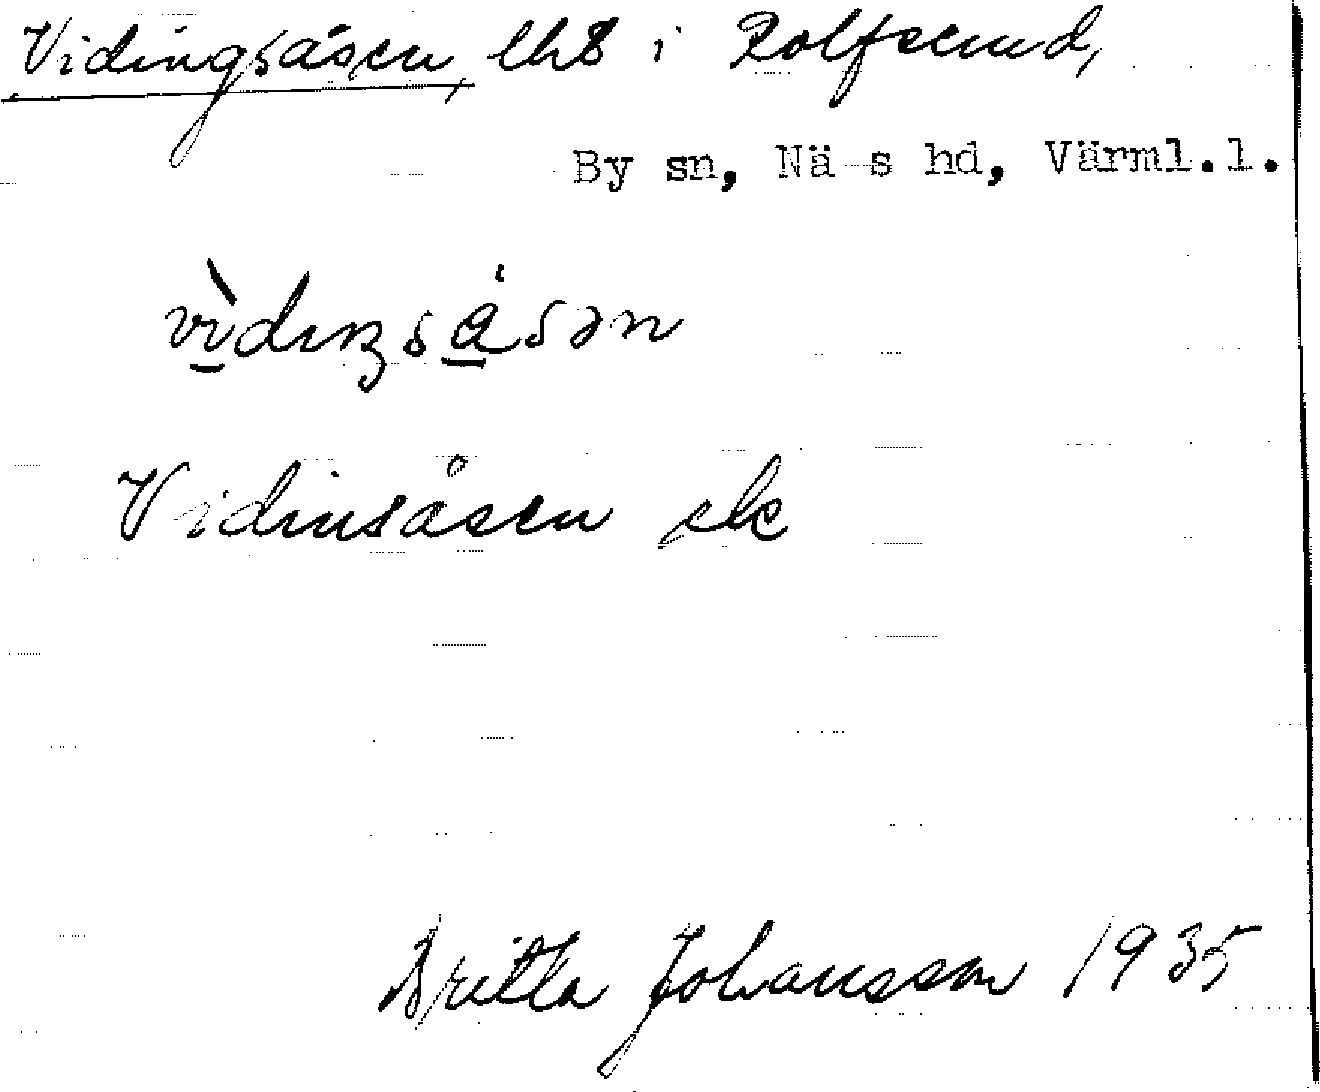 Vidingsåsen, lht i Rolfserud,
By sn, Nä s hd, Värml.l.
vìdıŋsåsən
Vidinsåsen ek
Britta Johansson 1935